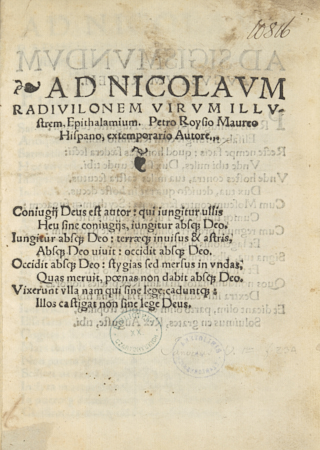 10816
AD NICOLAVM
RADIVILONEM VIRVM ILLV-
strem. Epithalamium. Petro Roysio Maureo
Hispano, extemporario Autore.,.
Coniugij Deus est autor: qui iungitur ullis
Heu sine coniugijs, iungitur absq; Deo.
Iungitur absq; Deo: terræq; inuisus & astris,
Absq; Deo uiuit: occidit absq; Deo.
Occidit absq; Deo: stygias sed mersus in vndas,
Quas meruit, pœnas non dabit absq; Deo.
Vixerunt vlla nam qui sine lege, caduntq; :
Illos castigat non sine lege Deus.